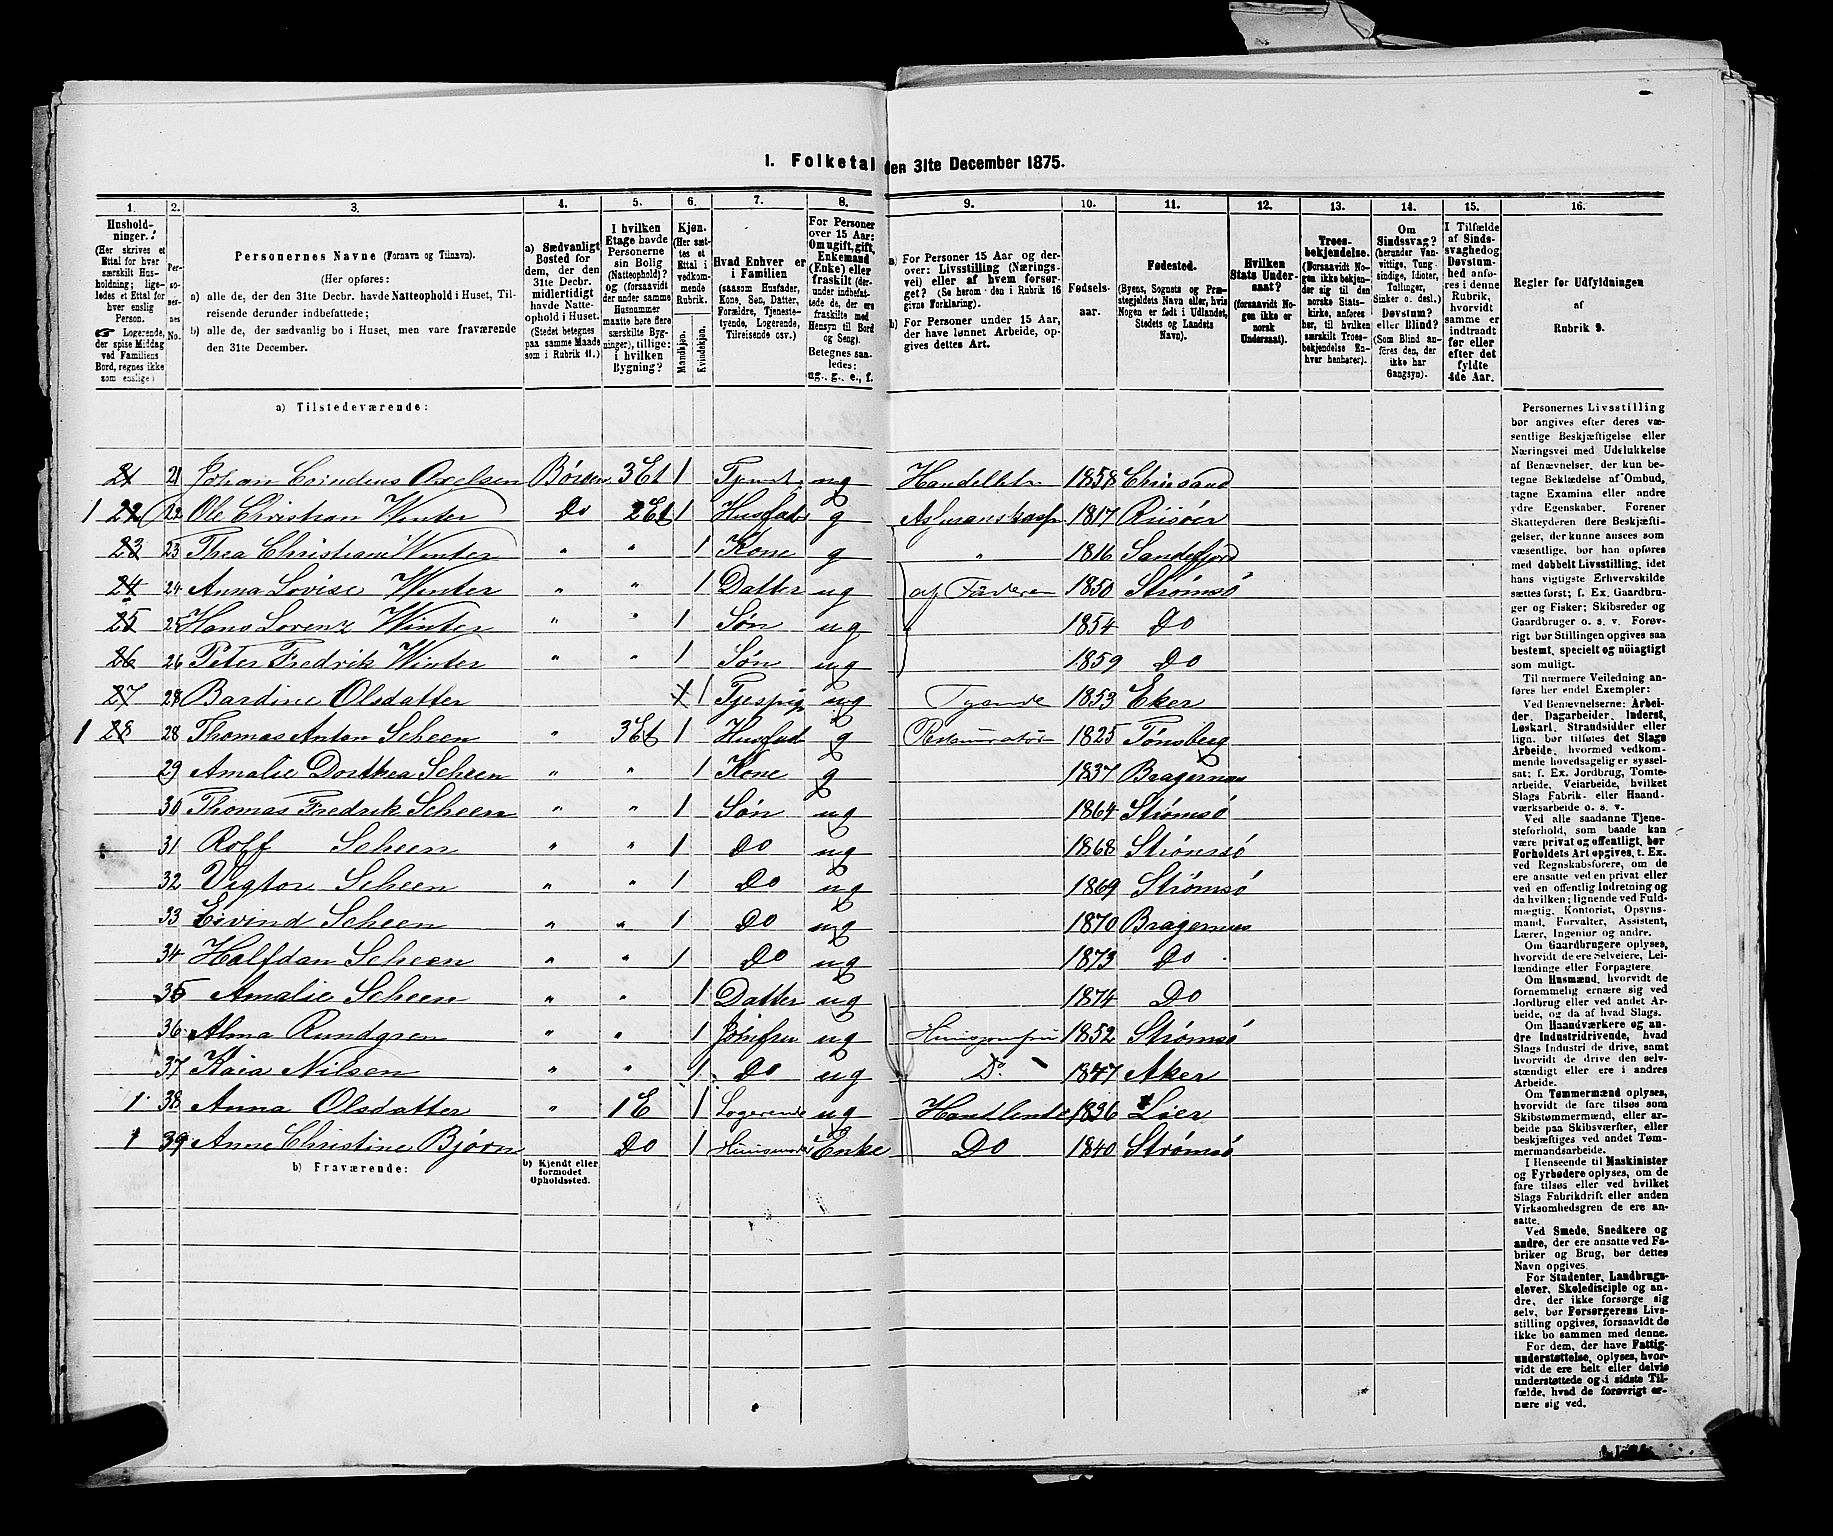 I. Folketal den 31te December 1875.
1. 2. 3. 4. 5. 6. 7. 8. 9. 10. 11. 12. 13. 14. 15. 16.
Husholdninger.
(Her skrives et Ettal for hver særskilt Husholdning; ligeledes et Ettal for hver enslig Person.
☛ Logerende, der spise Middag ved Familiens Bord, regnes ikke som enslige)
Personernes No.
Personernes Navne (Fornavn og Tilnavn).
(Her opføres:
a) alle de, der den 31te Decbr. havde Natteophold i Huset, Tilreisende derunder indbefattede;
b) alle de, der sædvanlig bo i Huset, men vare fraværende den 31te December.
a) Sædvanligt Bosted for dem, der den 31te Decbr. midlertidigt havde Natteophold i Huset. (Stedet betegnes paa samme Maade som i Rubrik 11.)
I hvilken Etage havde Personerne sin Bolig (Natteophold)? og (forsaavidt der under samme Husnummer maatte høre flere særskilte Bygninger), tillige: i hvilken Bygning?
Kjøn. (Her sættes et Ettal i vedkommende Rubrik.
Mandkjøn.
Kvindekjøn.
Hvad Enhver er i Familien
(saasom Husfader, Kone, Søn, Datter, Forældre, Tjenestetyende, Logerende, Tilreisende osv.)
For Personer over 15 Aar: Om ugift, gift, Enkemand (Enke) eller fraskilt (derunder indbefattede de, der ere fraskilte med Hensyn til Bord og Seng).
Betegnes saaledes: ug., g., e., f.
a) For Personer 15 Aar og derover: Livsstilling (Næringsvei) eller af hvem forsørget? (Se herom den i Rubrik 16 givne Forklaring).
b) For Personer under 15 Aar, der have lønnet Arbeide, opgives dettes Art.
Fødselsaar.
Fødested.
(Byens, Sognets og Præstegjeldets Navn eller, hvis Nogen er født i Udlandet, Stedets og Landets Navn).
Hvilken Stats Undersaat?
(forsaavidt Nogen ikke er norsk Undersaat).
Troesbekjendelse. (Forsaavidt Nogen ikke bekjender sig til den norske Statskirke, anføres her, til hvilken særskilt Troesbekjendelse Enhver henhører).
Om Sindssvag? (herunder Vanvittige, Tungsindige, Idioter, Tullinger, Sinker o. desl.) Døvstum? eller Blind? (Som Blind anføres den, der ikke har Gangsyn).
I Tilfælde af Sindssvaghed og Døvstumhed anføres i denne Rubrik, hvorvidt samme er indtraadt før eller efter det fyldte 4de Aar.
Regler for Udfyldningen af Rubrik 9.
a) Tilstedeværende:
21 21 Johan Axelsen Børsen 3Et 1 Tjendt ug 1858 Chrisand
1 22 22 Ole Christian Winter Do 2Et 1 Husfad g 1817 Risøer
23 23 Thea Christiani Winter " " 1 Kone g " 1816 Sandefjord
24 24 Anna Lovise Winter " " 1 Datter ug af Faderen 1850 Strømsö
25 25 Hans Lorenz Winter " " 1 Søn ug " 1854 Do
26 26 Peter Fredrik Winter " " 1 Søn ug 1859 Do
27 28 Bardine Olsdatter 1 Tjespig ug Tyende 1853 Eker
1 28 28 Thomas Anton Scheen 3Et 1 Husfad g Restauratør 1825 Tønsberg
29 Amalie Dorthea Scheen " " 1 Kone g 1837 Bragernæs
30 Thomas Fredrik Scheen " " 1 Søn ug 1864 Strømsö
31 Rolf Scheen " " 1 Do ug 1868 Strømsö
32 Vigtor Scheen " " 1 Do ug 1869 Strømsö
33 Eivind Scheen " " 1 Do ug 1870 Bragernæs
34 Halfdan Scheen " " 1 Do ug 1873 Do
35 Amalie Scheen " " 1 Datter ug 1874 Do
36 Alma Rundgren " " 1 Jomfru ug Huusjomfru 1852 Strømsö
37 Kaia Nilsen " " 1 Do ug Do 1847 Aker
1 38 Anna Olsdatter " 1E 1 Logerende ug 1836 Lier
1 39 Anne Christine Bjørn Do 1 Huusmoder Enke Do 1840 Strømsö
b) Fraværende:
b) Kjendt eller formodet Opholdssted.
Personernes Livsstilling bør angives efter deres væsentlige Beskjæftigelse eller Næringsvei med Udelukkelse af Benævnelser, der kun betegne Beklædelse af Ombud, tagne Examina eller andre ydre Egenskaber. Forener Skatteyderen flere Beskjæftigelser, der kunne ansees som væsentlige, bør han opføres med dobbelt Livsstilling, idet hans vigtigste Erhvervskilde sættes først; f. Ex. Gaardbruger og Fisker; Skibsreder og Gaardbruger o. s. v. Forøvrigt bør Stillingen opgives saa bestemt, specielt og nöiagtigt som muligt.
Til nærmere Veiledning anføres her endel Exempler:
Ved Benævnelserne: Arbeider, Dagarbeider, Inderst, Løskarl, Strandsidder eller lign. bør tilføies det Slags Arbeide, hvormed vedkommende hovedsagelig er sysselsat; f. Ex. Jordbrug, Tomtearbeide, Veiarbeide, hvilket Slags Fabrik- eller Haandværksarbeide o. s. v.
Ved alle saadanne Tjenesteforhold, som baade kan være privat og offentligt, bør Forholdets Art opgives, t. Ex. ved Regnskabsførere, om de ere ansatte ved en privat eller ved en offentlig Indretning og da hvilken; lignende ved Fuldmægtig, Kontorist, Opsynsmand, Forvalter, Assistent, Lærer, Ingeniør og andre.
Om Gaardbrugere oplyses, hvorvidt de ere Selveiere, Leilændinge eller Forpagtere.
Om Husmænd, hvorvidt de fornemmelig ernære sig ved Jordbrug eller ved andet Arbeide, og da af hvad Slags.
Om Haandværkere og andre Industridrivende, hvad Slags Industri de drive, samt hvorvidt de drive den selvstændigt eller ere i andres Arbeide.
Om Tømmermænd oplyses, hvorvidt de fare tilsøs som Skibstømmermænd, eller arbeide paa Skibsværfter, eller beskjæftiges ved andet Tømmermandsarbeide.
I Henseende til Maskinister og Fyrbødere oplyses, om de fare tilsøs eller ved hvilket Slags Fabrikdrift eller anden Virksomhedsgren de ere ansatte.
Ved Smede, Snedkere og andre, der ere ansatte ved Fabriker og Brug, bør dettes Navn opgives.
For Studenter, Landbrugselever, Skoledisciple og andre, der ikke forsørge sig selv, bør Forsørgerens Livsstilling opgives, forsaavidt de ikke bo sammen med denne.
For dem, der have Fattigunderstøttelse, oplyses, hvorvidt de ere helt eller delvis understøttede og i sidste Tilfælde, hvad de forøvrigt ernære sig ved.